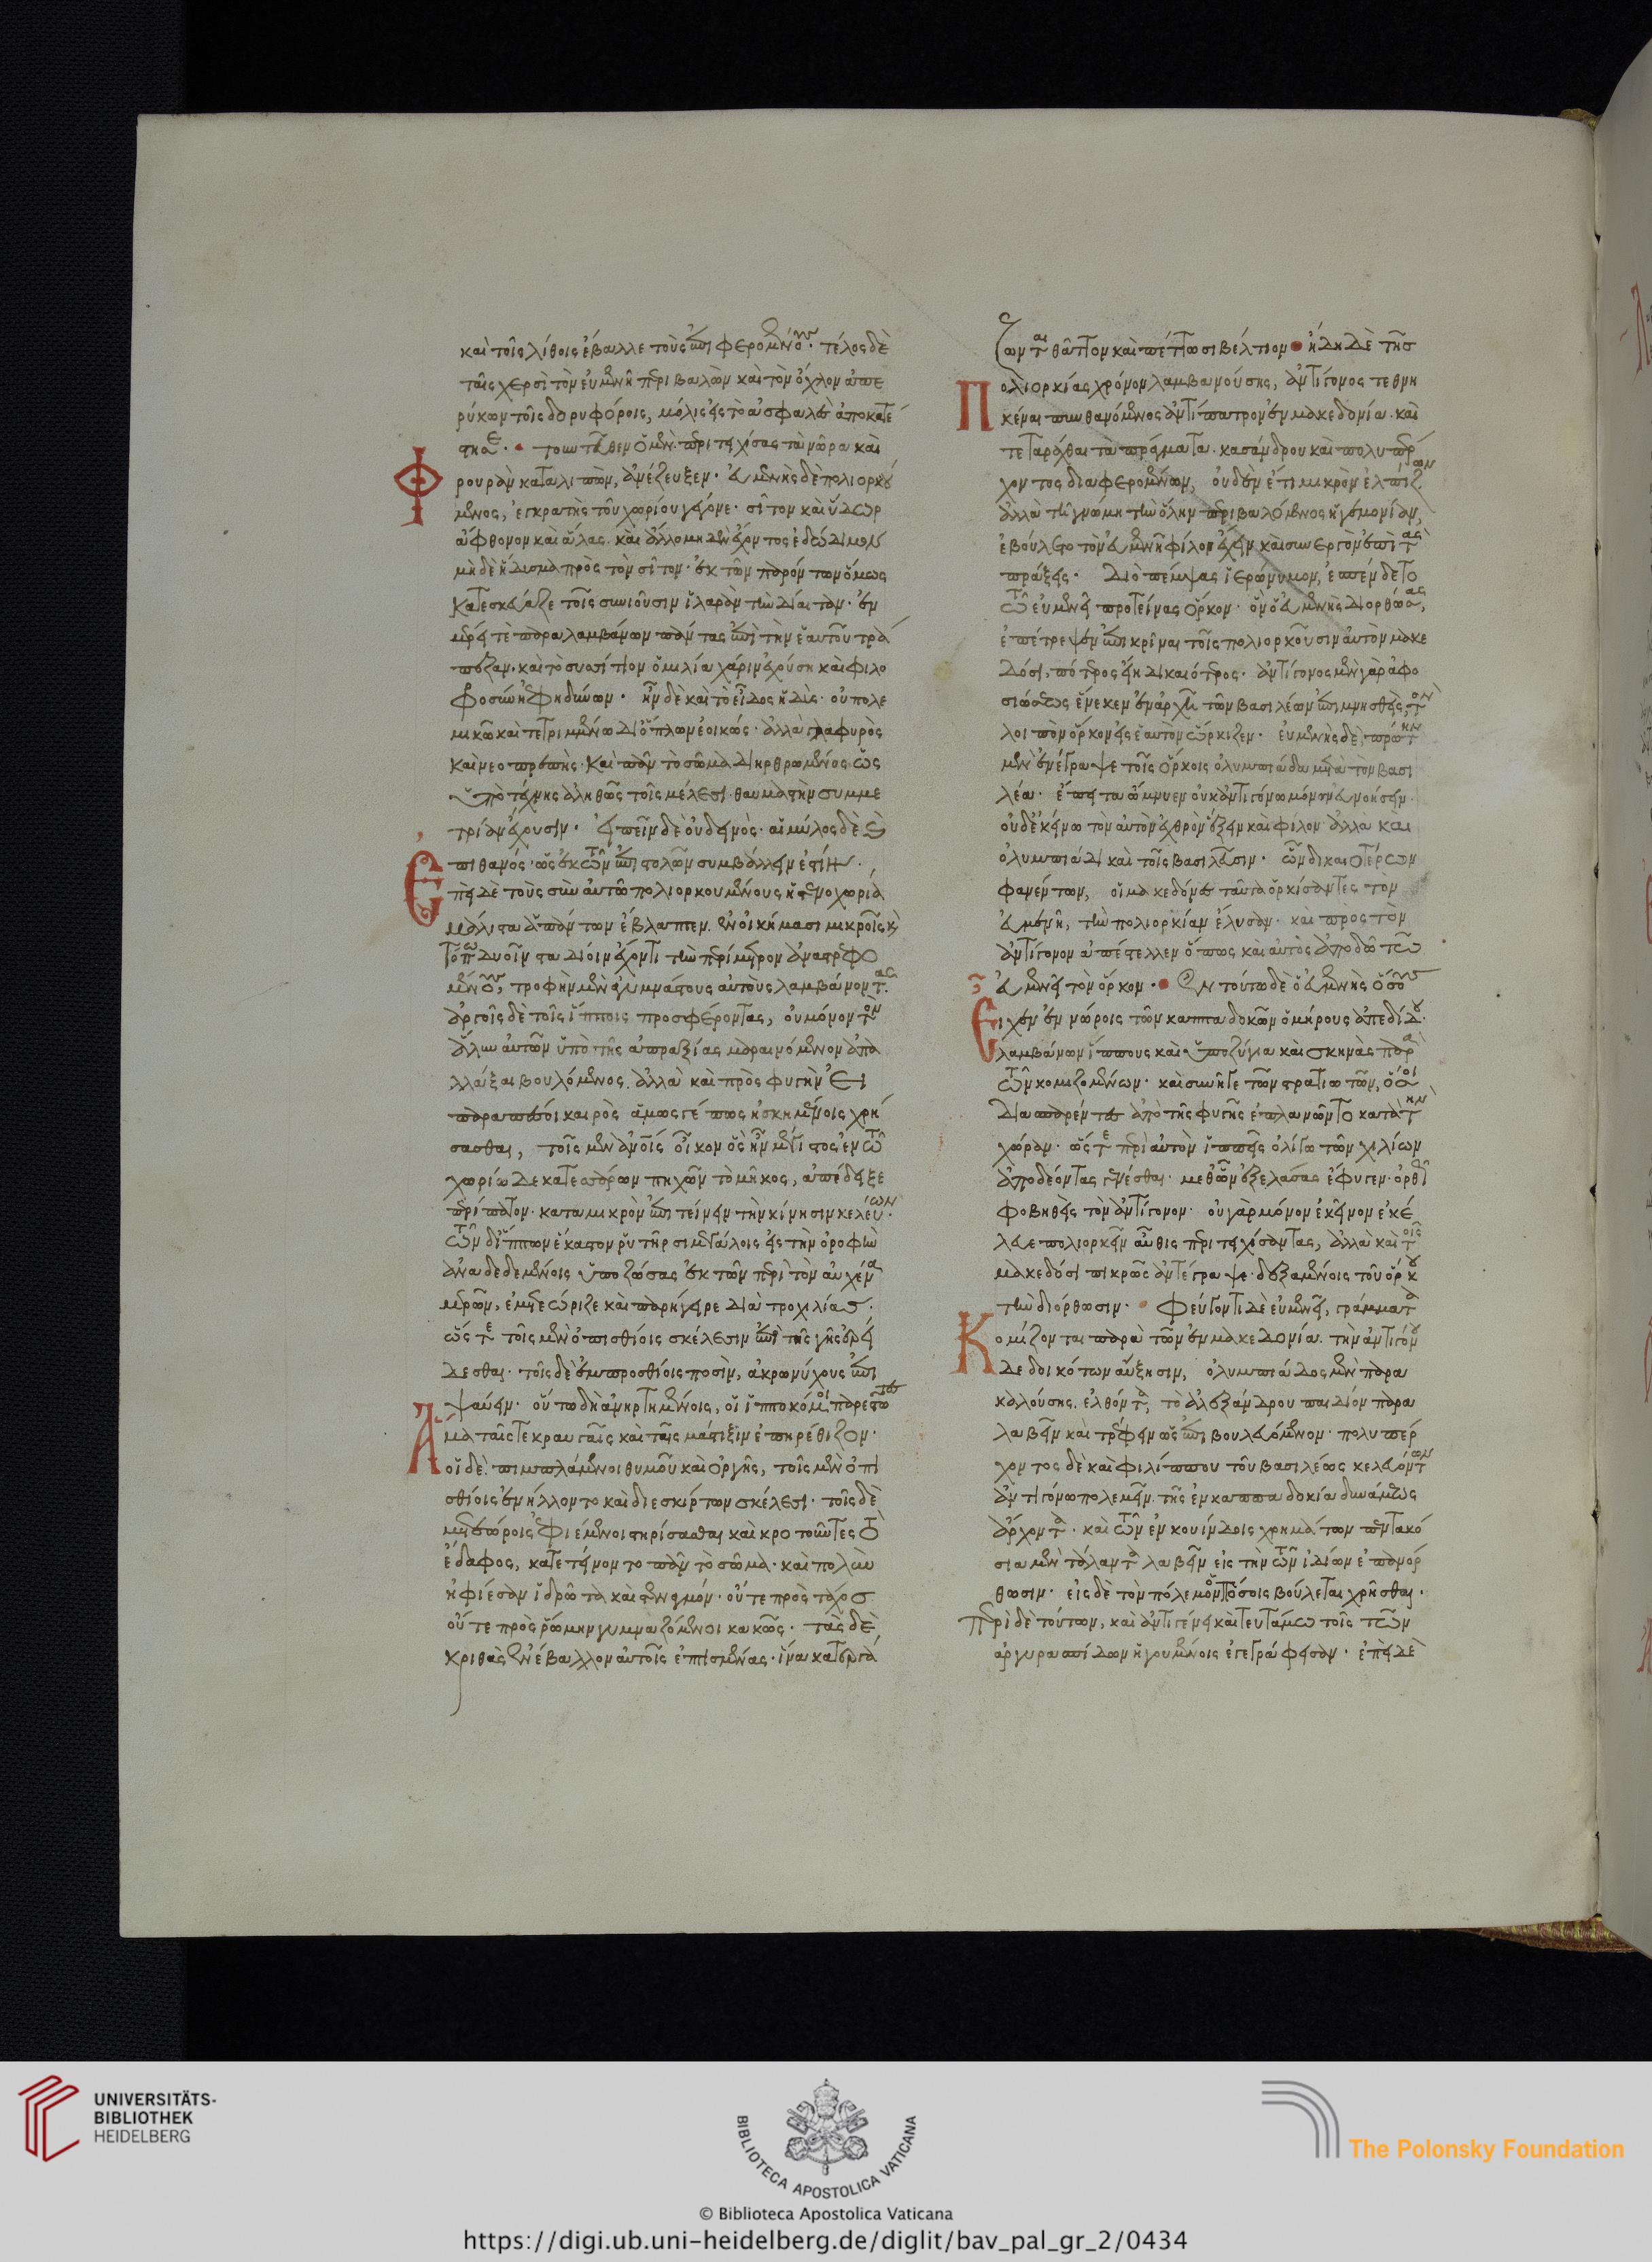 καὶ τοῖς λίθοις ἔβαλλε τοὺς ἐπιφερομένους. τέλος δὲ
ταῖς χερσὶ τὸν εὐμενῆ περιβαλὼν καὶ τὸν ὄχλον ἀπε
ρύκων τοῖς δορυφόροις, μόλις εἰς τὸ ἀσφαλὲς ἀποκατέ
στησε. τοὐντεῦθεν ὁ μὲν περιτειχίσας τὰ νῶρα καὶ
Φρουρὰν καταλιπὼν, ἀνέζευξεν. εὐμενὴς δὲ πολιορκού
μενος, ἐγκρατὴς τοῦ χωρίου γέγονε. σῖτον καὶ ὕδωρ
ἄφθονον καὶ ἅλας. καὶ ἄλλο μηδὲν ἔχοντος ἐδώδιμον
μηδὲ ἥδισμα πρὸς τὸν σῖτον. ἐκ τῶν παρόντων ὅμως
κατεσκεύαζε τοῖς συνιοῦσιν ἱλαρὰν τὴν δίαιταν. ἐν
μέρει τε παραλαμβάνων πάντας ἐπὶ τὴν ἑαυτοῦ τρά
πεζαν. καὶ τὸ συσσίτιον ὁμιλία χάριν ἐχούση καὶ φιλο
φροσύνη ἐφηδύνων. ἦν δὲ καὶ τὸ εἶδος ἡδὺς. οὐ πολε
μικῶ καὶ τετριμμένω δι' ὅπλων ἐοικώς. ἀλλὰ γλαφυρὸς
καὶ νεοπρεπὴς. καὶ πᾶν τὸ σῶμα διηρθρωμένος ὡς
ὑπὸ τέχνης ἀληθῶς τοῖς μέλεσι. θαυμαστὴν συμμε
τρίαν ἔχουσιν. εἰπεῖν δὲ οὐ δεινὸς. αἱμύλος δὲ καὶ
πιθανός. ὡς ἐκ τῶν ἐπιστολῶν συμβάλλειν ἐστίν.
Ἐπεὶ δὲ τοὺς σὺν αὐτῶ πολιορκουμένους ἡ στενοχωρία
μάλιστα ἁπάντων ἔβλαπτεν. ἐν οἰκήμασι μικροῖς καὶ
τόπω δυοῖν σταδίοιν ἔχοντι τὴν περίμετρον ἀναστρεφο
μένους, τροφὴν μὲν ἀγυμνάστους αὐτοὺς λαμβάνοντας.
ἀργοῖς δὲ τοῖς ἵπποις προσφέροντας, οὐ μόνον τὸν
ἄλυν αὐτῶν ὑπὸ τῆς ἀπραξίας μαραινόμενον ἀπα
λλάξαι βουλόμενος. ἀλλὰ καὶ πρὸς φυγὴν εἰ
παραπέσοι καιρὸς ἁμωσγέπως ἠσκημένοις χρή
σασθαι, τοῖς μὲν ἀνθρώποις οἶκον ὃς ἦν μέγιστος ἐν τῶ
χωρίω δεκατεσσάρων πηχῶν τὸ μῆκος, ἀπέδειξε
περίπατον. κατὰ μικρὸν ἐπιτείνειν τὴν κίνησιν κελεύων.
τῶν δ' ἵππων ἕκαστον ῥυτῆρσι μεγάλοις εἰς τὴν ὀροφὴν
ἀναδεδεμένοις ὑποζώσας ἐκ τῶν περὶ τὸν αὐχένα
μερῶν, ἐμετεώριζε καὶ παρήγειρε διὰ τροχιλίας.
ὥστε τοῖς μὲν ὀπισθίοις σκέλεσιν ἐπὶ τῆς γῆς ἐρεί
δεσθαι. τοῖς δὲ ἐμπροσθίοις ποσὶν, ἀκρωνύχους ἐπι
ψαύειν. οὕτω δὴ ἀνηρτημένοις, οἱ ἱπποκόμοι παρεστῶτες
Ἅμα ταῖς τε κραυγαῖς καὶ ταῖς μάστιξιν ἐπηρέθιζον.
οἱ δὲ πιμπλάμενοι θυμοῦ καὶ ὀργῆς, τοῖς μὲν ὀπι
σθίοις ἐνήλλοντο καὶ διεσκίρτων σκέλεσι. τοῖς δὲ
μετεώροις ἐφιέμενοι στηρίσασθαι καὶ κροτοῦντες τὸ
ἔδαφος, κατετείνοντο πᾶν τὸ σῶμα. καὶ πολὺν
ἠφίεσαν ἱδρῶτα καὶ στεναγμόν. οὔτε πρὸς τάχος
οὔτε πρὸς ῥώμην γυμναζόμενοι κακῶς. τὰς δὲ
κριθὰς ἐνέβαλλον αὐτοῖς ἐπτισμένας. ἵνα κατεργά
ζωνται θᾶττον καὶ πέττωσι βέλτιον. ἤδη δὲ τῆς
Πολιορκίας χρόνον λαμβανούσης, ἀντίγονος τεθνη
κέναι πυνθανόμενος ἀντίπατρον ἐν μακεδονία. καὶ
τεταράχθαι τὰ πράγματα. κασάνδρου καὶ πολυπέρ
χοντος διαφερομένων, οὐδὲν ἔτι μικρὸν ἐλπίζων
ἀλλὰ τῆ γνώμη τὴν ὅλην περιβαλόμενος ἡγεμονίαν,
ἐβούλετο τὸν εὐμενῆ φίλον ἔχειν καὶ συνεργὸν ἐπὶ τὰς
πράξεις. Διὸ πέμψας ἱερώνυμον, ἐσπένδετο
τῶ εὐμενεῖ προτείνας ὅρκον. ὃν ὁ εὐμενὴς διορθώσας,
ἐπέτρεψεν ἐπικρῖναι τοῖς πολιορκοῦσιν αὐτὸν μακε
δόσι, πότερος εἴη δικαιότερος. ἀντίγονος μὲν γὰρ ἀφο
σιώσεως ἕνεκεν ἐν ἀρχῆ τῶν βασιλέων ἐπιμνησθεὶς, τὸν
λοιπὸν ὅρκον εἰς ἑαυτὸν ὥρκιζεν. εὐμενὴς δὲ, πρώτην
μὲν ἐνέγραψε τοῖς ὅρκοις ὀλυμπιάδα μετὰ τῶν βασι
λέων. ἔπειτα ὤμνυεν οὐκ ἀντιγόνω μόνον εὐνοήσειν.
οὐδ' ἐκείνω τὸν αὐτὸν ἐχθρὸν ἕξειν καὶ φίλον ἀλλὰ καὶ
ὀλυμπιάδι καὶ τοῖς βασιλεῦσιν. ὧν δικαιοτέρων
φανέντων, οἱ μακεδόνες ταῦτα ὁρκίσαντες τὸν
εὐμένη, τὴν πολιορκίαν ἔλυσαν. καὶ πρὸς τὸν
ἀντίγονον ἀπέστελλεν ὅπως καὶ αὐτὸς ἀποδῶ τῶ
εὐμενεῖ τὸν ὅρκον. Ἐν τούτω δὲ ὁ εὐμενὴς ὅσους
Εἶχεν ἐν νώροις τῶν καππαδοκῶν ὁμήρους ἀπεδίδου.
λαμβάνων ἵππους καὶ ὑποζύγια καὶ σκηνὰς παρὰ
τῶν κομιζομένων. καὶ συνῆγε τῶν στρατιωτῶν, ὅσοι
διασπαρέντες ἀπὸ τῆς φυγῆς ἐπλανῶντο κατὰ τὴν
χώραν. ὥστε περὶ αὐτὸν ἱππεῖς ὀλίγω τῶν χιλίων
ἀποδέοντας γενέσθαι. μεθ' ὧν ἐξελάσας ἔφυγεν. ὀρθῶς
φοβηθεὶς τὸν ἀντίγονον. οὐ γὰρ μόνον ἐκεῖνον ἐκέ
λευε πολιορκεῖν αὖθις περιτειχίσαντας, ἀλλὰ καὶ τοῖς
μακεδόσι πικρῶς ἀντέγραψε. δεξαμένοις τοῦ ὅρκου
τὴν διόρθωσιν. Φεύγοντι δὲ εὐμενεῖ, γράμματα
Κομίζονται παρὰ τῶν ἐν μακεδονία. τὴν ἀντιγόνου
δεδοικότων αὔξησιν, ὀλυμπιάδος μὲν παρα
καλούσης. ἐλθόντα, τὸ ἀλεξάνδρου παιδίον παρα
λαβεῖν καὶ τρέφειν ὡς ἐπιβουλευόμενον. πολυπέρ
χοντος δὲ καὶ φιλίππου τοῦ βασιλέως κελευόντων
ἀντιγόνω πολεμεῖν. τῆς ἐν καππαδοκία δυνάμεως
ἄρχοντα. καὶ τῶν ἐν κουίνδοις χρημάτων πεντακό
σια μὲν τάλαντα λαβεῖν εἰς τὴν τῶν ἰδίων ἐπανόρ
θωσιν. εἰς δὲ τὸν πόλεμον ὁπόσοις βούλεται χρῆσθαι.
περὶ δὲ τούτων, καὶ ἀντιγένει καὶ τευτάμω τοῖς τῶν
ἀργυρασπίδων ἡγουμένοις ἐγεγράφεσαν. ἐπεὶ δὲ
UNIVERSITÄTS-
BIBLIOTHEK
HEIDELBERG
BIBLIOTECA APOSTOLICA VATICANA
The Polonsky Foundation
© Biblioteca Apostolica Vaticana
https://digi.ub.uni-heidelberg.de/diglit/bav_pal_gr_2/0434